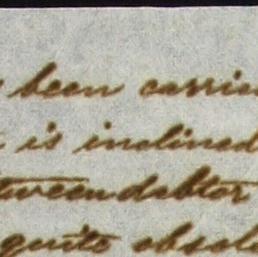 been carri
is inclined
tween debtor
quite obsol